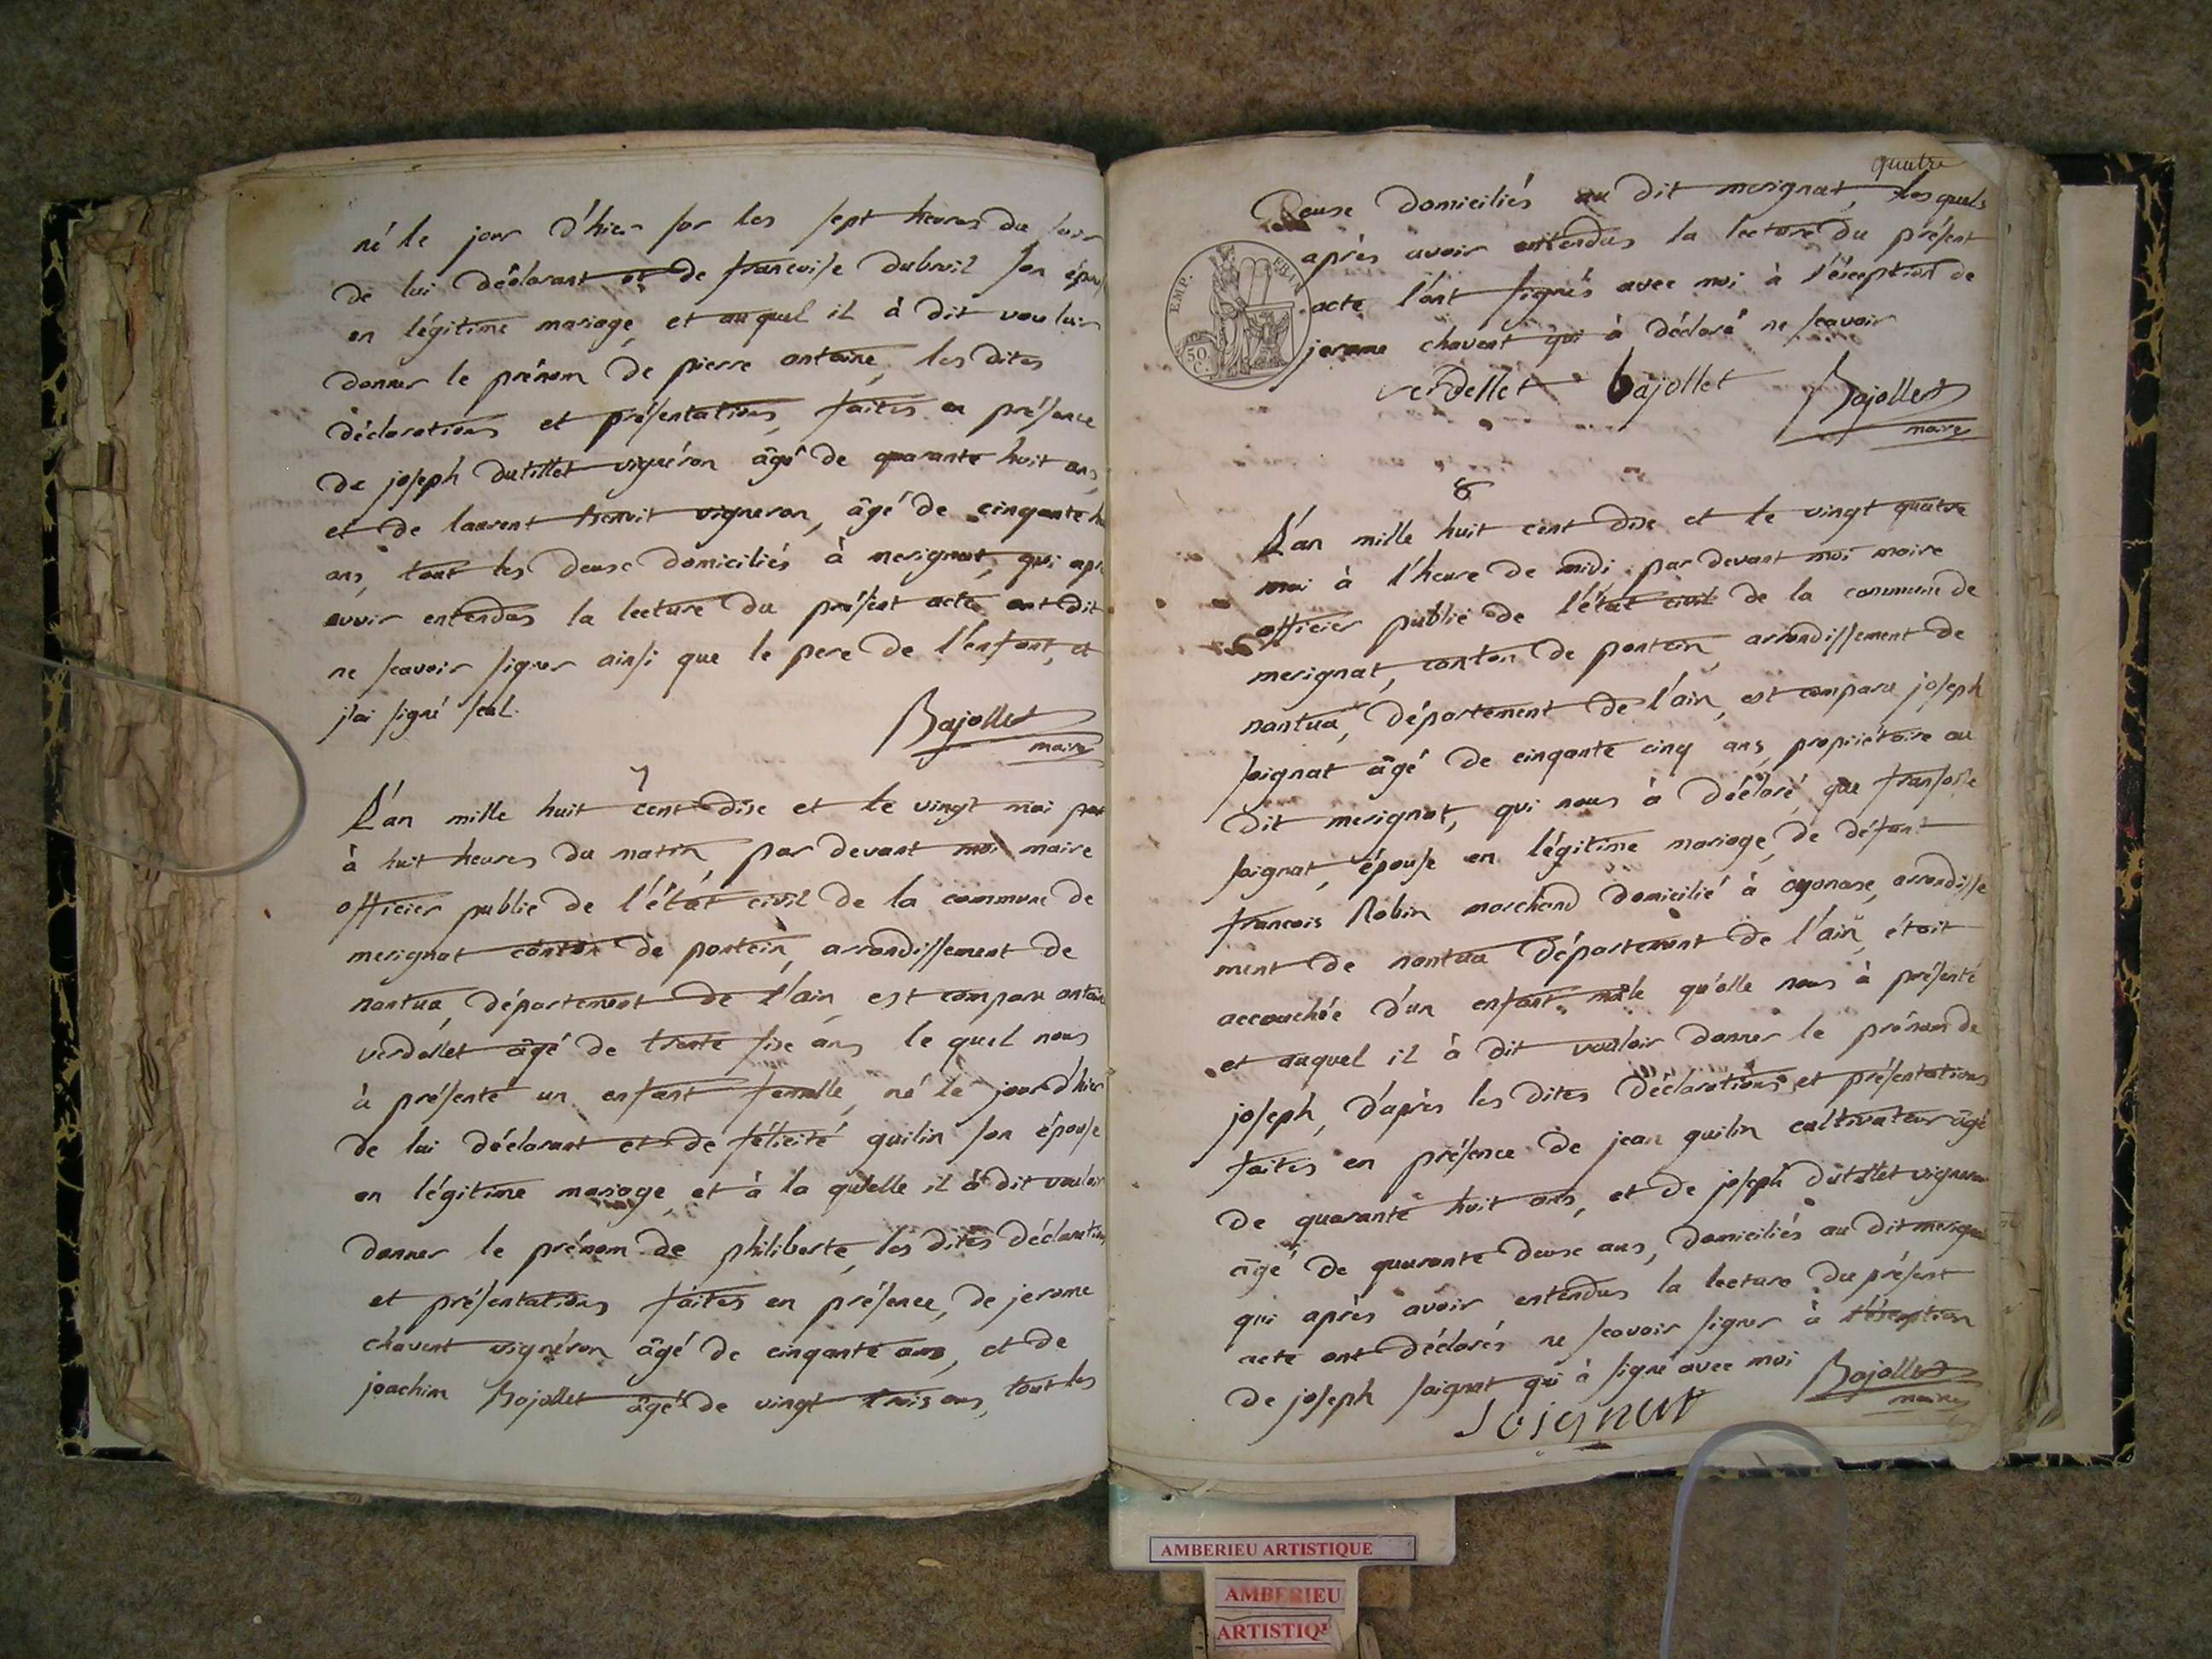 né le jour d'hier sur les sept heures du soir
de lui déclarant et de francoise dubreil son épouse
en légitime mariage, et au quel il à dit vouloir
donner le prénom de pierre antoine, les dites
déclarations et présentations, faites en présence
de joseph dutillet vignéron âgé de quarante huit ans,
et de laurent benoit vigneron, âgé de cinquante
ans, tout les deuse domiciliés à merignat, qui
avoir entendus la lecture du présent acte ont dit
ne scavoir signer ainsi que le pere de l'enfant, et
j'ai signé seul.
Bajollet
maire
7
L'an mille huit cent dise et le vingt mai
à huit heures du matin par devant moi maire
officier public de l'état civil de la commune de
merignat canton de poncin, arrondissement de
nantua, département de l'ain, est comparu antoine
verdellet âgé de trente sise ans le quel nous
à présenté un enfant femelle, né le jour d'hier
de lui déclarant et de félicité guilin son épouse
en légitime mariage et à la quelle il à dit vouloir
donner le prénom de philiberte, les dites déclarations
et présentations faites en présence, de jerome
chavent vignéron âgé de cinquante ans, et de
joachim Bajollet âgé de vingt trois ans, tout les
quatre
Deuse domiciliés au dit merignat, les quels
après avoir entendus la lecture du présent
acte l'ont signés avec moi à l'éxeption de
jerome chavent qui à déclaré ne scavoir
EMP. FRAN.
50 C.
verdellet bajollet Bajollet
maire
8
L'an mille huit cent dise et le vingt quatre
mai à l'heure de midi par devant moi maire
officier public de l'état civil de la commune de
merignat, canton de poncin, arrondissement de
nantua, département de l'ain, est comparu joseph
soignat âgé de cinqante cinq ans, propriétaire au
dit merignat, qui nous à déclaré, que fransoise
soignat, épouse en légitime mariage, de défunt
francois Robin marchand domicilié à oyonase, arrondisse
ment de nantua département de l'ain, étoit
accouchée d'un enfant mâle qu'elle nous à présenté
et auquel il à dit vouloir donner le prénom de
joseph, d'après les dites déclarations et présentations
faites en présence de jean guilin cultivateur âgé
de quarante huit ans, et de joseph dutillet vigneron
âgé de quarante deuse ans, domiciliés au dit merignat
qui après avoir entendus la lecture du présent
acte ont déclarés ne scavoir signer à l'éxeption
de joseph soignat qui à signé avec moi Bajollet
maire
Soignat
AMBERIEU ARTISTIQUE
AMBERIEU
ARTISTIQ